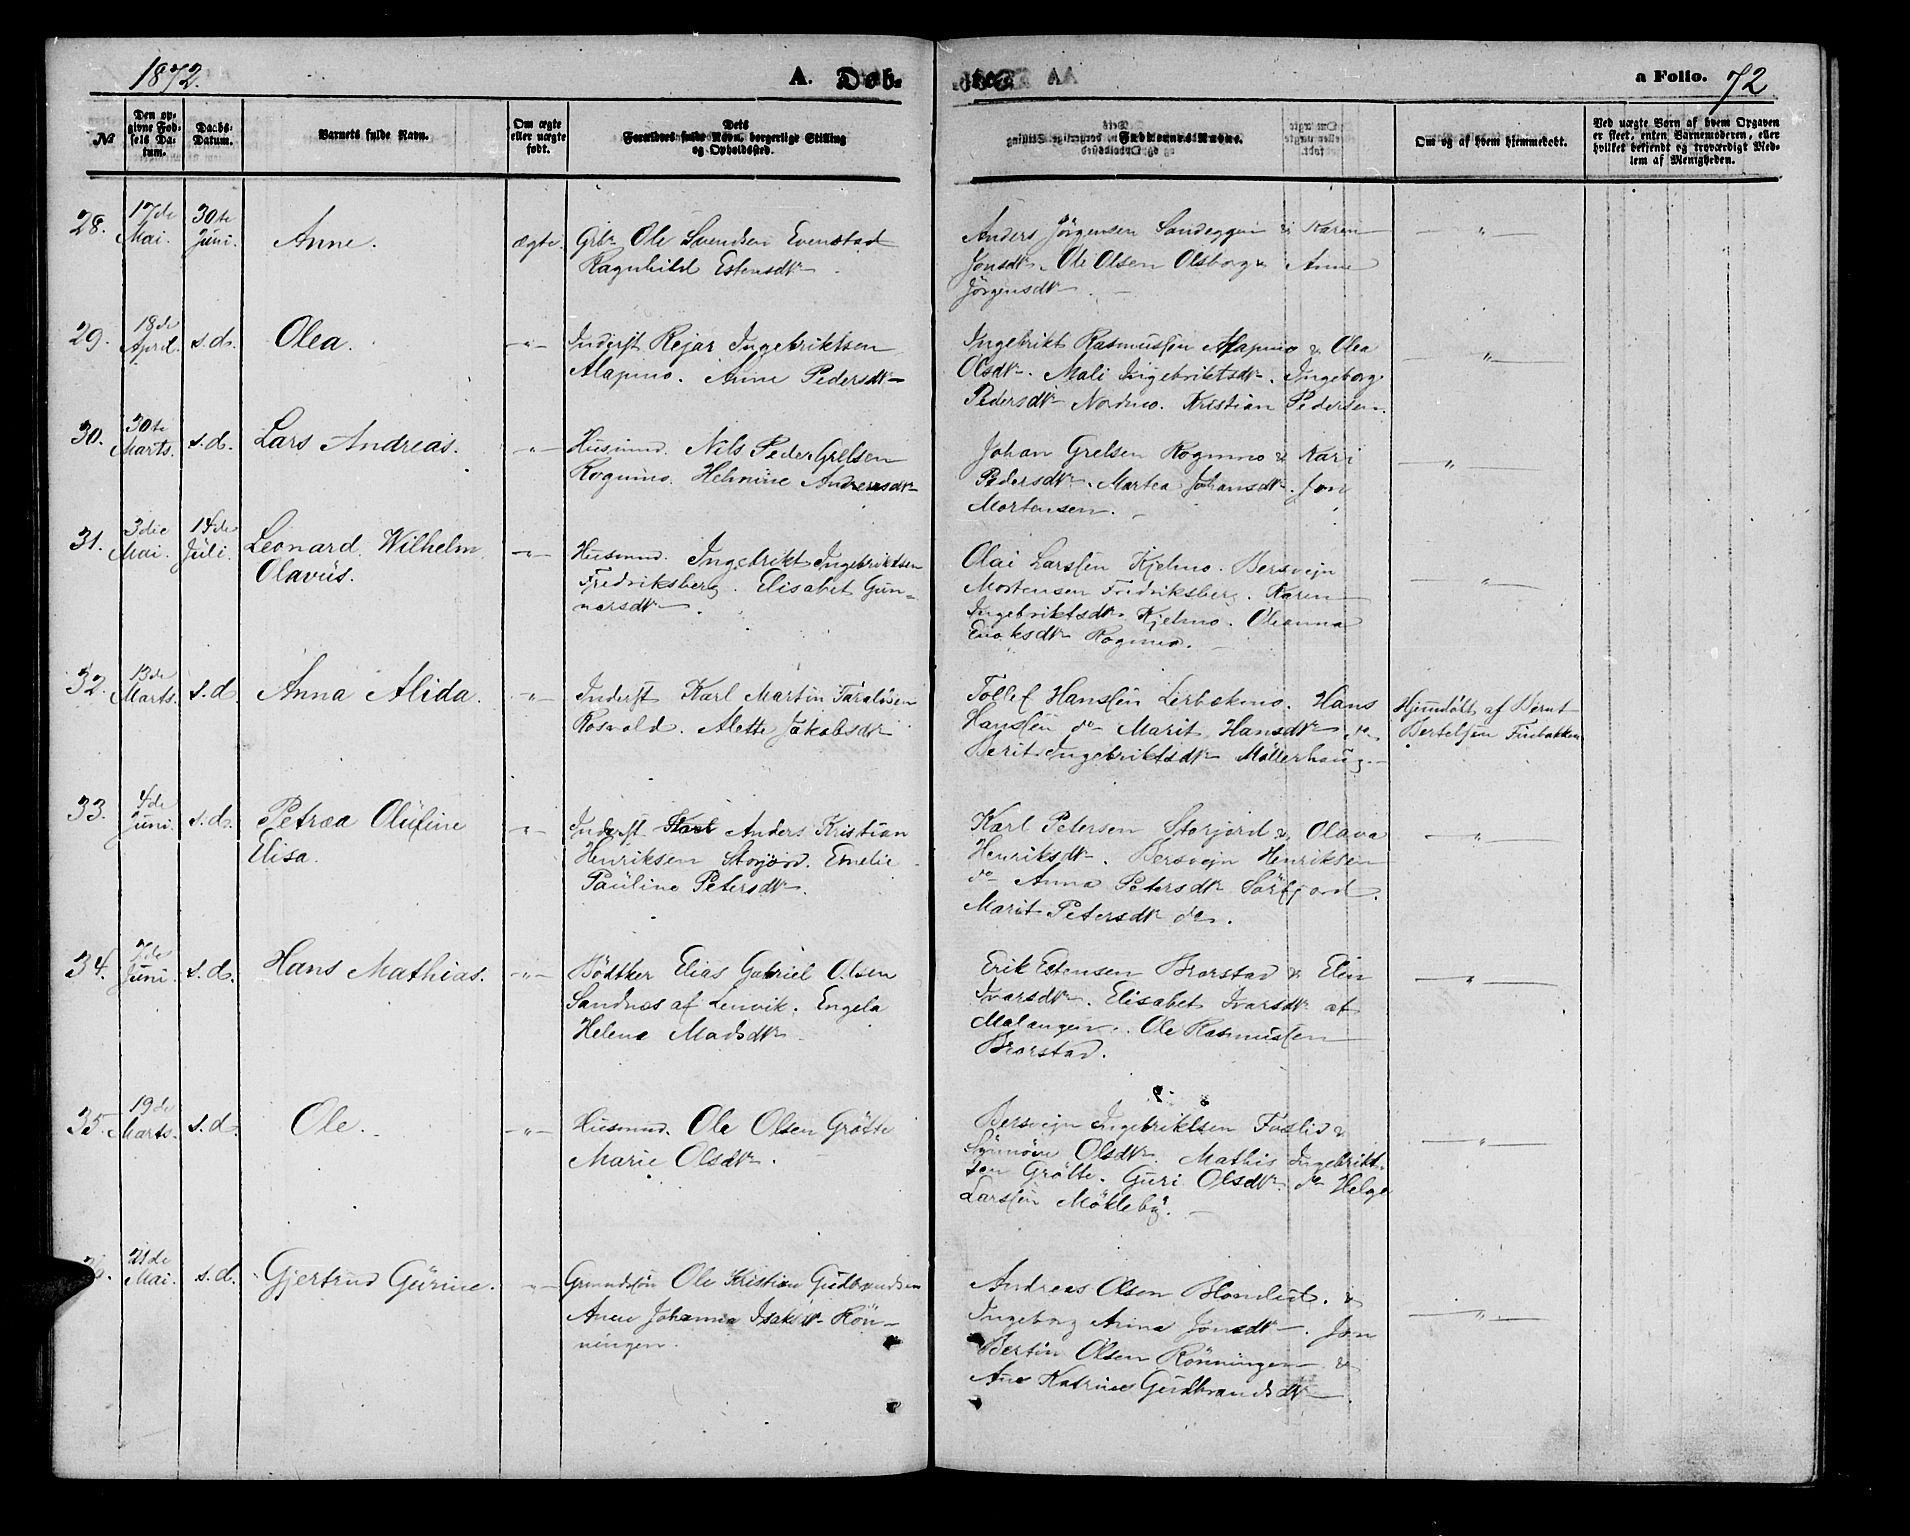 1872.
A. Døb-
te.
a Folio. 72
№
Den op-
givne Fød-
sels Da-
tum.
Daabs-
Datum.
Barnets fulde Navn.
Om ægte
eller uægte
født.
Dets
Forældres fulde Navn, borgerlige Stilling
og Opholdssted.
Faddernes Navne.
Om og af hvem hjemmedøbt.
Ved uægte Børn af hvem Opgaven
er skeet, enten Barnemoderen, eller
hvilket bekjendt og troværdigt Med-
lem af Menigheden.
28.
17de
Mai.
30te
Juni.
Anne.
ægte.
Grbr Ole Svendsen Evenstad
Ragnhild Estensdtr
Anders Jörgensen Sandeggen & Karen
Jonsdtr. Ole Olsen Olsborg & Anne
Jörgensdtr.
29.
18de
April.
s.d.
Olea.
Inderst Rejar Ingebriktsen
Alapmo. Anne Pedersdtr
Ingebrikt Rasmussen Alapmo & Olea
Olsdtr. Mali Ingebriktsdtr. Ingeborg
Pedersdtr Nordmo. Kristian Pedersen.
30.
30te
Marts.
s.d.
Lars Andreas.
Husmnd. Nils Peder Grelsen
Rognmo. Helmine Andreasdtr
Johan Grelsen Rognmo & Kari
Pedersdtr. Martea Johansdtr. Jon
Mortensen.
31.
3die
Mai.
14de
Juli.
Leonard Wilhelm
Olavüs.
Husmnd. Ingebrikt Ingebriktsen
Fredriksberg. Elisabet Gun-
narsdtr.
Olai Larssen Kjelmo. Bersvejn
Mortensen Fredriksberg. Karen
Ingebriktsdtr. Kjelmo. Oleanna
Enoksdtr Rognmo.
32.
13de
Marts.
s.d.
Anna Alida.
Inderst Karl Martin Taraldsen
Rosvold. Alette Jakobsdtr
Tollef Hanssen Lerbækmo. Hans
Hanssen do Marit Hansdtr do
Berit Ingebriktsdtr Möllerhaug.
Hjemdöbt af Bernt
Bertelsen Finbakken
33.
4de
Juni.
s.d.
Petræa Olüfine
Elisa.
Inderst Karl Anders Kristian
Henriksen Storjord. Emelie
Pauline Petersdtr.
Karl Petersen Storjord & Olava
Henriksdtr. Bersvejn Henriksen
do Anna Petersdtr Sörfjord.
Marit Petersdtr do.
34.
7de
Juni.
s.d.
Hans Mathias.
Bödtker Elias Gabriel Olsen
Sandnes af Lenvik. Engela
Helena Madsdtr
Erik Estensen Brorstad & Elen
Ivarsdtr. Elisabet Ivarsdtr af
Malangen. Ole Rasmussen
Brorstad.
35.
19de
Marts.
s.d.
Ole.
Husmnd. Ole Olsen Grötte
Marie Olsdtr.
Bersvejn Ingebriktsen Fosslid &
Synnöve Olsdtr. Mathis Ingebrikt-
sen Grötte. Guri Olsdtr. do Helge
Larssen Mökleby.
21de
Mai.
s.d.
Gjertrud Gürine.
Grundssön Ole Kristian Gudbrandsen
Anne Johanna Isaksdtr Rön-
ningen.
Andreas Olsen Blomlid. &
Ingeborg Anna Jonsdtr. Jon
Bertin Olsen Rönningen &
Ane Katrine Gudbrandsdtr